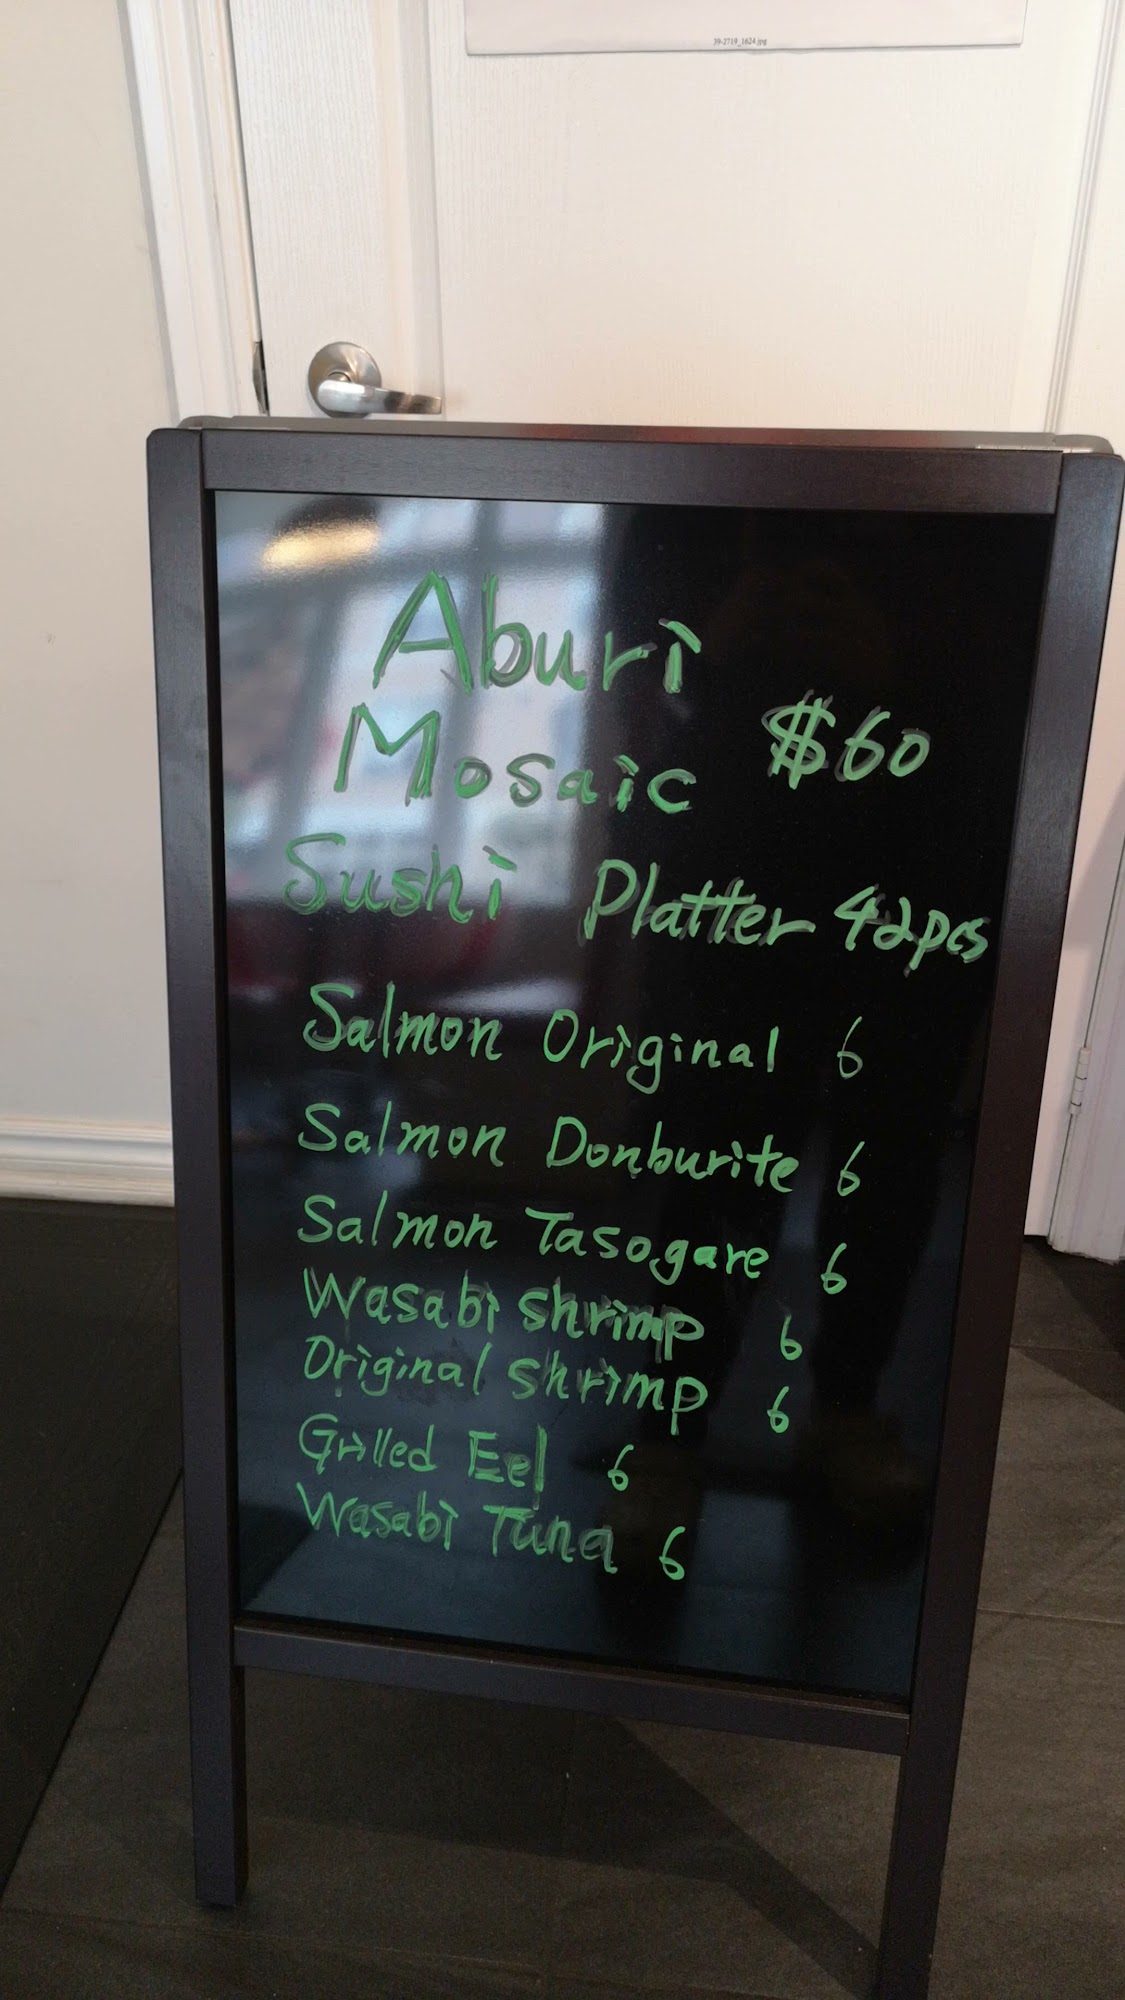 39-2719_1624.jpg
Aburi
Mosaic $60
Sushi Platter 42pcs
Salmon Original 6
Salmon Donburite 6
Salmon Tasogare 6
Wasabi shrimp 6
Original shrimp 6
Grilled Eel 6
Wasabi Tuna 6